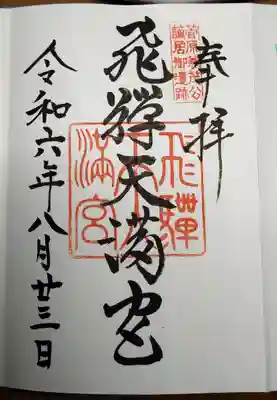 奉拝
菅原兼茂公
謫居御遺跡
飛騨天満宮
飛驒
天
満宮
令和六年八月廿三日